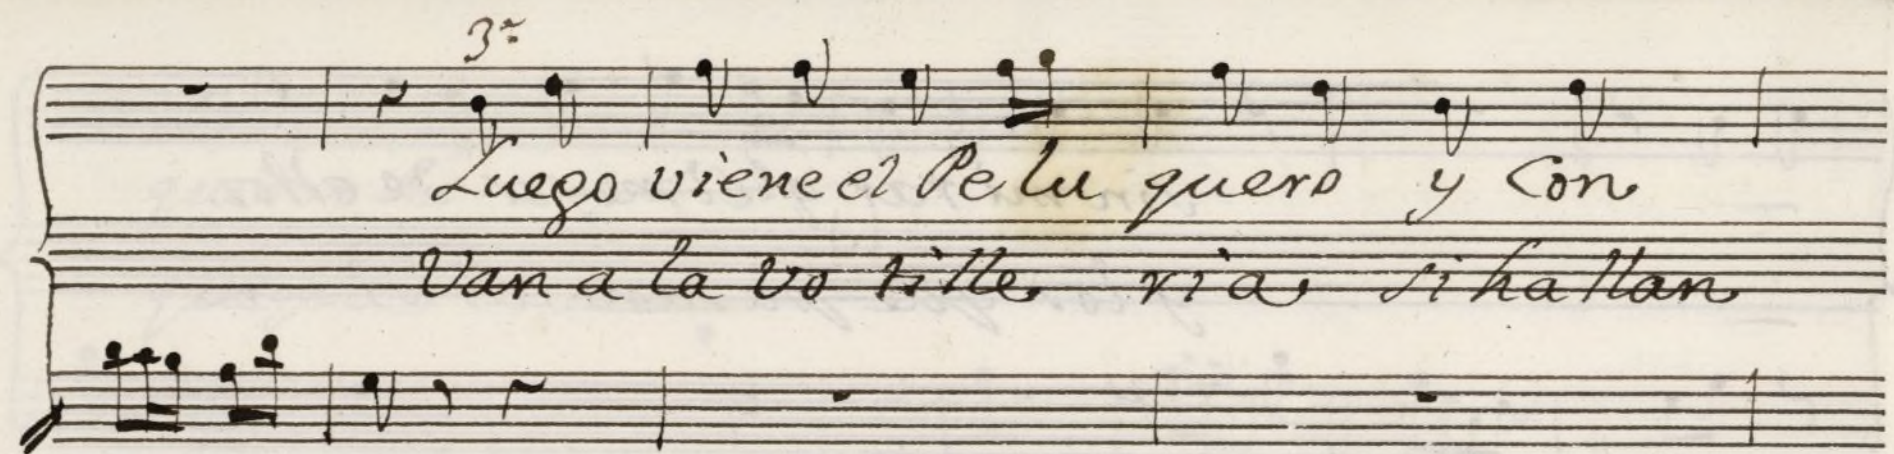 3ª
Luego viene el Pe lu quero y Con
Van a la vo tille ria si hallan